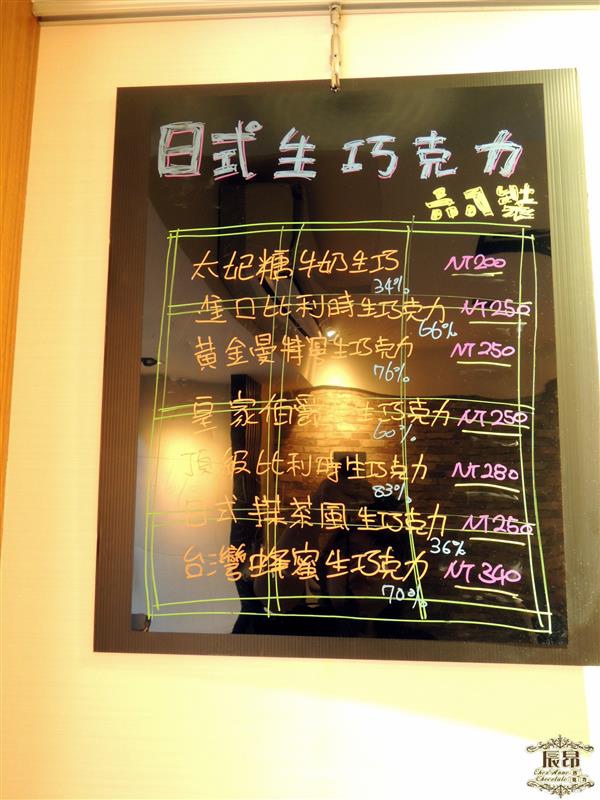 日式生巧克力
六入裝
太妃糖牛奶生巧 NT200
34%
進口比利時生巧克力 NT250
66%
黃金曼特寧生巧克力 NT250
76%
皇家伯爵 生巧克力 NT250
60%
頂級比利時生巧克力 NT280
83%
日式抹茶風生巧克力 NT250
36%
台灣蜂蜜生巧克力 NT340
70%
辰昂
Chez Anne
Chocolate